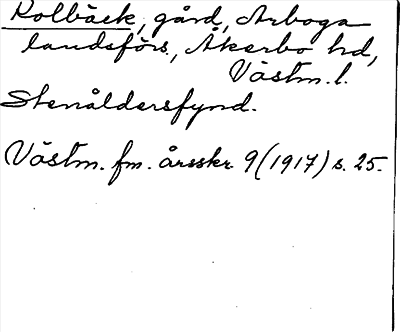 Kolbäck, gård, Arboga
landsförs., Åkerbo hd,
Västm. l.
Stenåldersfynd.
Västm. fm. årsskr. 9 (1917) s. 25.